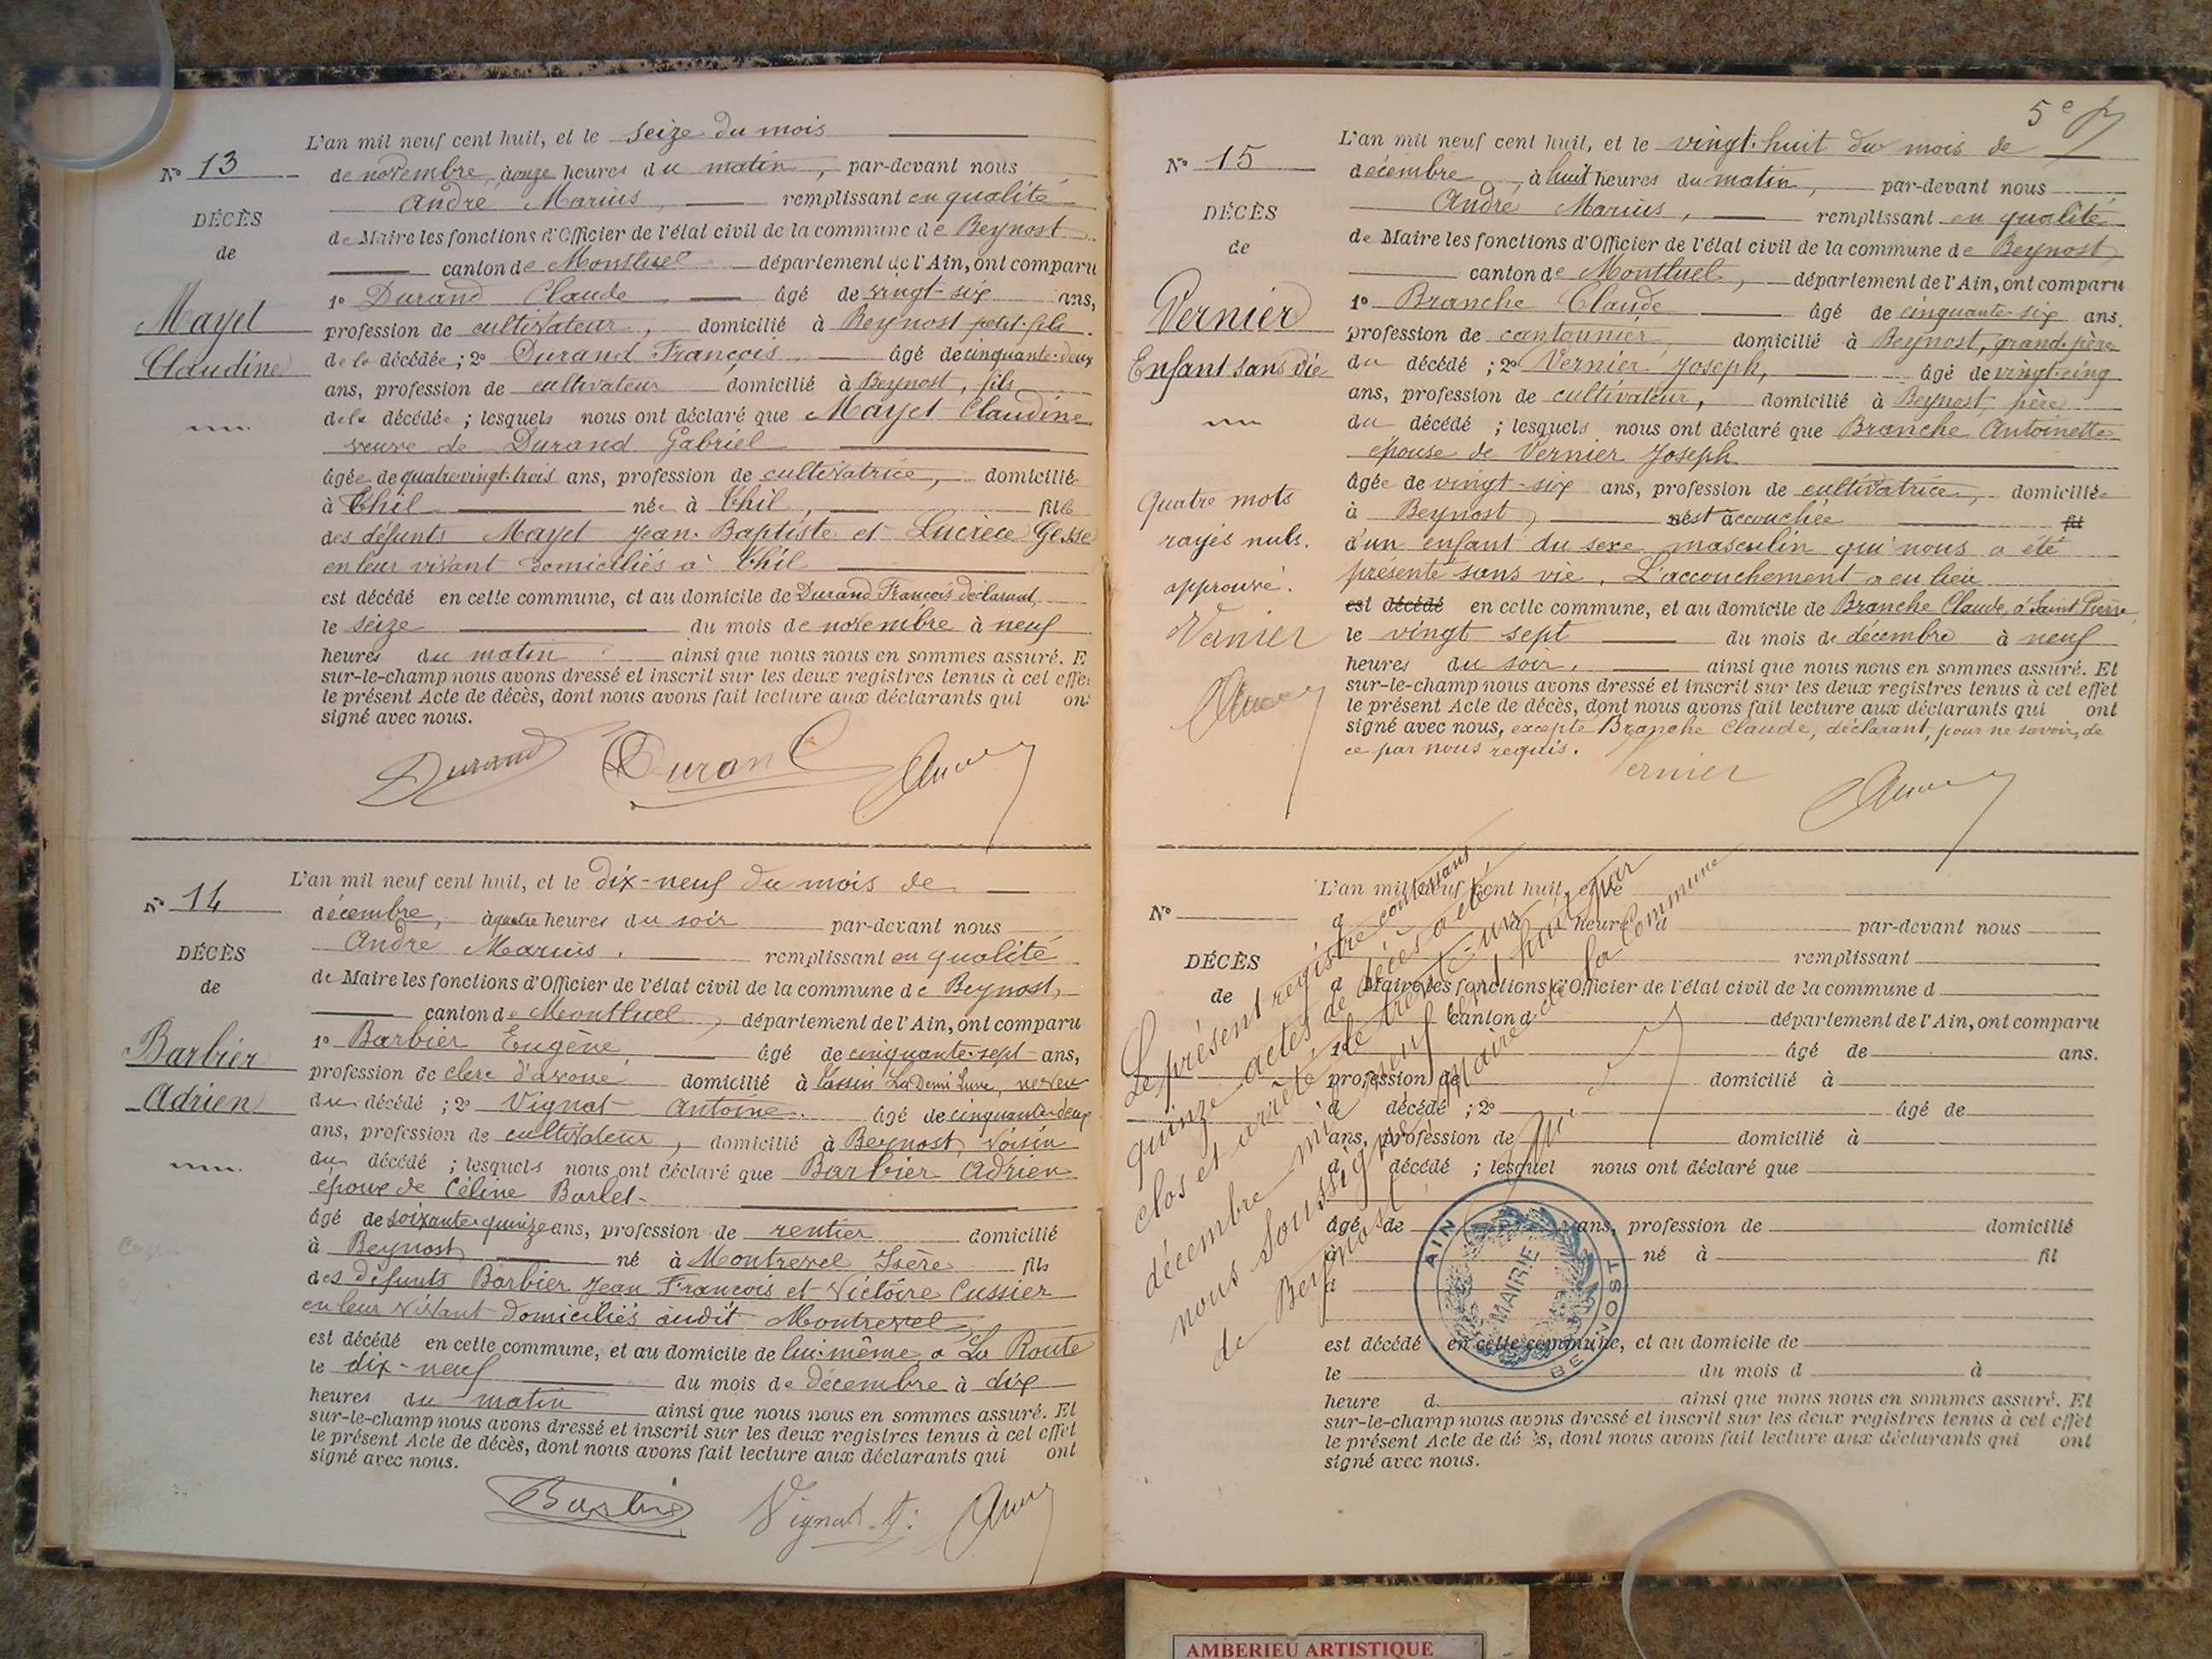 L'an mil neuf cent huit, et le seize du mois
N° 13
de novembre, à onze heures du matin, par-devant nous
André Marius, remplissant en qualité
DÉCÈS
de Maire les fonctions d'Officier de l'état civil de la commune de Beynost
de
canton de Montluel département de l'Ain, ont comparu
1° Durand Claude âgé de vingt-six ans,
Mayet
profession de cultivateur, domicilié à Beynost petit-fils
Claudine
de la décédée ; 2° Durand François âgé de cinquante-deux
ans, profession de cultivateur domicilié à Beynost, fils
de la décédée ; lesquels nous ont déclaré que Mayet Claudine
veuve de Durand Gabriel
âgée de quatre vingt-trois ans, profession de cultivatrice, domiciliée
à Thil née à Thil, fille
des défunts Mayet Jean-Baptiste et Lucrèce Gesse
en leur vivant domiciliés à Thil
est décédé en cette commune, et au domicile de Durand François déclarant,
le seize du mois de novembre à neuf
heures du matin ainsi que nous nous en sommes assuré. E
sur-le-champ nous avons dressé et inscrit sur les deux registres tenus à cet effe
le présent Acte de décès, dont nous avons fait lecture aux déclarants qui on
signé avec nous.
Durand Durand
L'an mil neuf cent huit, et le dix-neuf du mois de
N° 14
décembre, à quatre heures du soir par-devant nous
André Marius. remplissant en qualité
DÉCÈS
de Maire les fonctions d'Officier de l'état civil de la commune de Beynost,
de
canton de Montluel, département de l'Ain, ont comparu
Barbier
1° Barbier Eugène, âgé de cinquante-sept ans,
Adrien
profession de clerc d'avoué domicilié à Tassin La Demi Lune, neveu
du décédé ; 2° Vignat Antoine. âgé de cinquante-deux
ans, profession de cultivateur, domicilié à Beynost, voisin
du décédé ; lesquels nous ont déclaré que Barbier Adrien
époux de Céline Barlet
âgé de soixante-quinze ans, profession de rentier domicilié
à Beynost, né à Montrevel Isère fils
des défunts Barbier Jean François et Victoire Cussier
en leur vivant domiciliés audit Montrevel,
est décédé en cette commune, et au domicile de lui-même à La Route
le dix-neuf du mois de décembre à dix
heures du matin ainsi que nous nous en sommes assuré. Et
sur-le-champ nous avons dressé et inscrit sur les deux registres tenus à cet effet
le présent Acte de décès, dont nous avons fait lecture aux déclarants qui ont
signé avec nous.
Barbier Vignat A.
5e
L'an mil neuf cent huit, et le vingt-huit du mois de
N° 15
décembre, à huit heures du matin, par-devant nous
André Marius, remplissant en qualité
DÉCÈS
de Maire les fonctions d'Officier de l'état civil de la commune de Beynost
de
canton de Montluel, département de l'Ain, ont comparu
Vernier
1° Branche Claude âgé de cinquante-six ans.
profession de cantonnier domicilié à Beynost, grand-père
Enfant sans vie
du décédé ; 2° Vernier Joseph, âgé de vingt-cinq
ans, profession de cultivateur, domicilié à Beynost, père
du décédé ; lesquels nous ont déclaré que Branche Antoinette
épouse de Vernier Joseph
âgée de vingt-six ans, profession de cultivatrice, domiciliée
à Beynost, né est accouchée fil
d'un enfant du sexe masculin qui nous a été
présenté sans vie. L'accouchement a eu lieu
est décédé en cette commune, et au domicile de Branche Claude, à Saint Pierre
le vingt sept du mois de décembre à neuf
heures du soir. ainsi que nous nous en sommes assuré. Et
sur-le-champ nous avons dressé et inscrit sur les deux registres tenus à cet effet
le présent Acte de décès, dont nous avons fait lecture aux déclarants qui ont
signé avec nous, excepté Branche Claude, déclarant, pour ne savoir, de
ce par nous requis.
Quatre mots
rayés nuls.
approuvé.
Vernier
Vernier
L'an mil neuf cent huit, et le
N°
à heure d par-devant nous
remplissant
DÉCÈS
d Maire les fonctions d'Officier de l'état civil de la commune d
de
canton d département de l'Ain, ont comparu
1° âgé de ans.
profession de domicilié à
d décédé ; 2° âgé de
ans, profession de domicilié à
d décédé ; lesquel nous ont déclaré que
âgé de ans, profession de domicilié
à né à fil
d
est décédé en cette commune, et au domicile de
le du mois d à
heure d ainsi que nous nous en sommes assuré. Et
sur-le-champ nous avons dressé et inscrit sur les deux registres tenus à cet effet
le présent Acte de décès, dont nous avons fait lecture aux déclarants qui ont
signé avec nous.
Le présent registre contenant
quinze actes de décès a été
clos et arrêté le trente-un
décembre mil neuf cent huit par
nous soussigné, Maire de la Commune
de Beynost.
AIN
MAIRIE
BEYNOST
AMBERIEU ARTISTIQUE